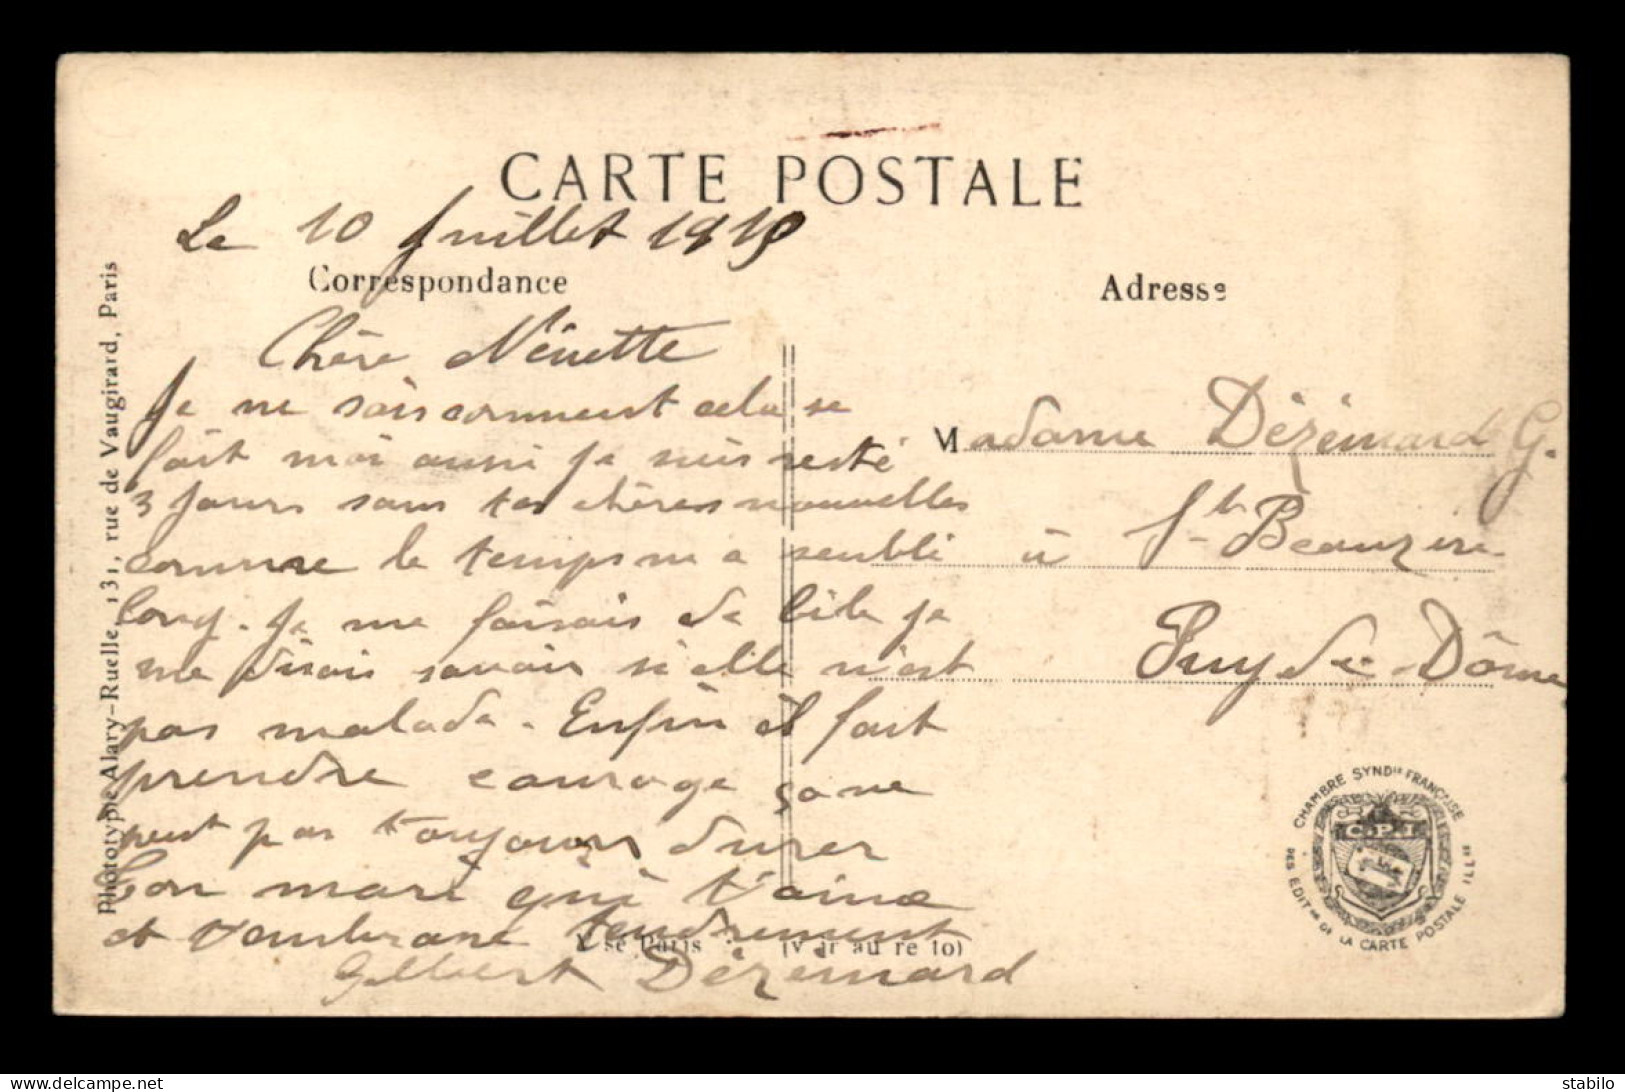 CARTE POSTALE
Le 10 Juillet 1915
Correspondance
Adresse
Chère Nénette
Je ne sais comment cela se
fait moi aussi je suis resté
3 jours sans tes chères nouvelles
comme le temps m'a semblé
long. Je me faisais de bile je
me disais savoir si elle n'est
pas malade. Enfin il faut
prendre courage ça ne
peut pas toujours durer
Ton mari qui t'aime
et t'embrasse tendrement
Gilbert Dézémard
Madame Dézémard G.
à St Beauzire
Puy de Dôme
Phototypie Alary-Ruelle, 131, rue de Vaugirard, Paris
Visé Paris (Voir au recto)
CHAMBRE SYNDle FRANÇAISE
DES EDITrs DE LA CARTE POSTALE ILLrée
C.P.I
stabilo